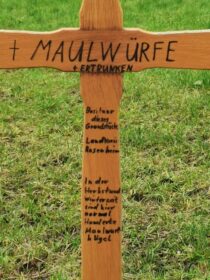 † MAULWÜRFE
† ERTRUNKEN
Besitzer
dieses
Grundstücks
Landkreis
Rosenheim
In der
Herbst und
Winterzeit
sind hier
normal
Hunderte
Maulwurf
hügel